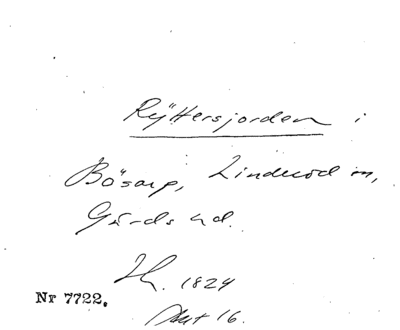 Ryttersjorden i
Bösarp, Linderöd sn,
Gärds hd.
1829
Nr 7722. Akt 16.